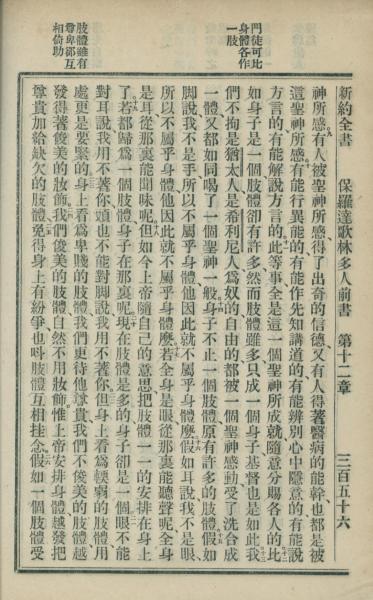 門徒可比
身體各作
一肢
肢體雖有
尊卑卻互
相倚助
新約全書 保羅達歌林多人前書 第十二章 三百五十六
神所感有人被聖神所感得了出奇的信德又有人得著醫病的能幹也都是被
這聖神所感有能行異能的有能作先知講道的有能辨別心中隱意的有能說
方言的有能解說方言的此等事全是這一個聖神所成就隨意分賜各人的比
如身子是一個肢體卻有許多然而肢體雖多只成一個身子基督也是如此我
們不拘是猶太人是希利尼人爲奴的自由的都被一個聖神感動受了洗合成
一體又都如同喝了一個聖神一般身子不止一個肢體原有許多的肢體假如
脚說我不是手所以不屬乎身體他因此就不屬乎身體麽假如耳說我不是眼
所以不屬乎身體他因此就不屬乎身體麽若全身是眼從那裏能聽聲呢全身
是耳從那裏能聞味呢但如今上帝隨自己的意思把肢體一一的安排在身上
了若都歸爲一個肢體身子在那裏呢現在肢體是多的身子卻是一個眼不能
對手說我用不著你頭也不能對脚說我用不著你但身上看爲輭弱的肢體用
處更是要緊的身上看爲卑賤的肢體我們更待他尊貴我們不俊美的肢體越
發得著俊美的妝飾我們俊美的肢體自然不用妝飾惟上帝安排身體越發把
尊貴加給缺欠的肢體免得身上有紛爭也呌肢體互相挂念假如一個肢體受